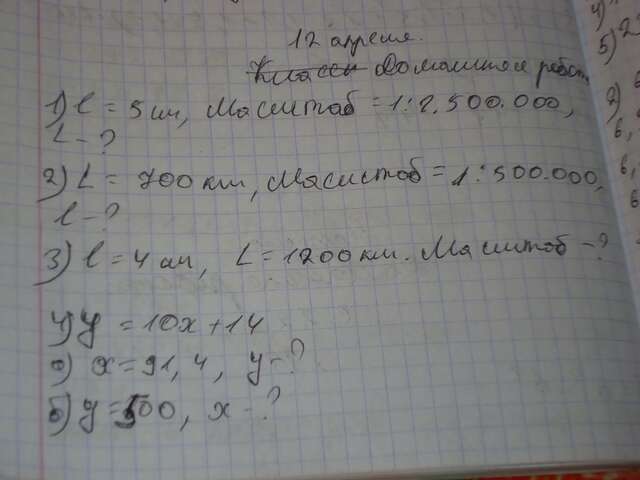 12 апреля.
Классн Домашняя работ
1) l = 5 см, Масштаб = 1:2.500.000,
L - ?
2) L = 700 км, Масштаб = 1:500.000,
l - ?
3) l = 4 см, L = 1200 км. Масштаб - ?
4) y = 10x + 14
а) x = 91,4, y - ?
б) y = 500, x - ?
4)
5) 2